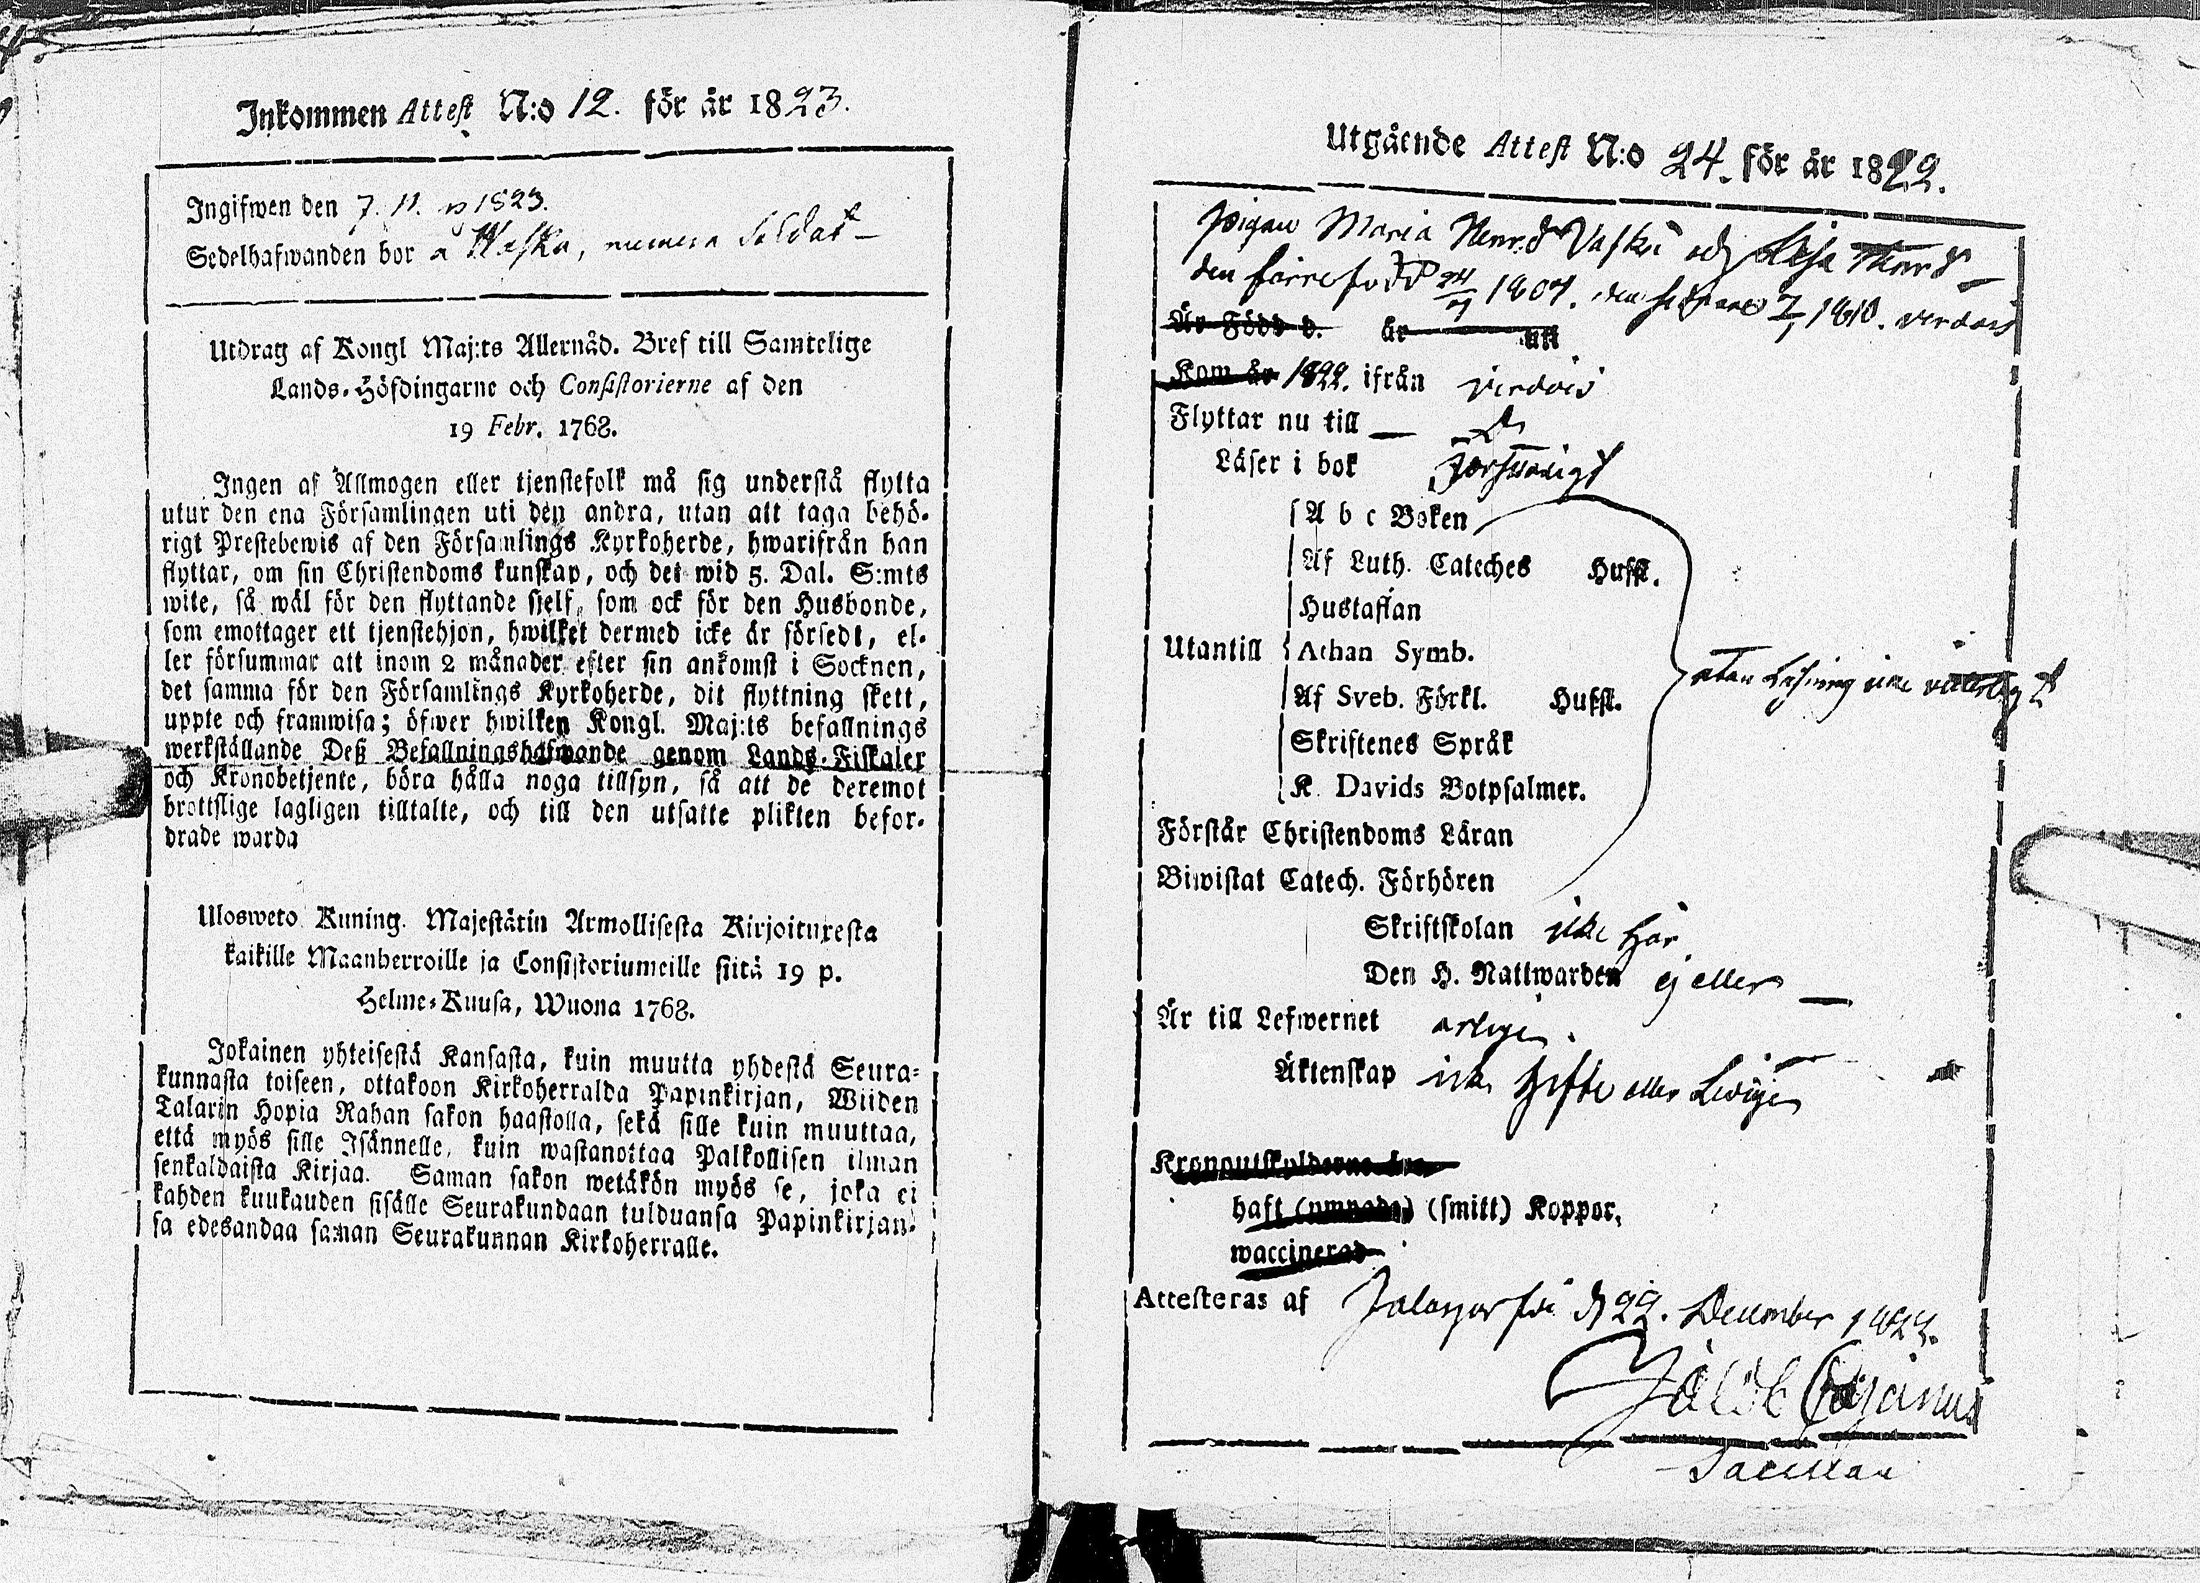 Inkommen Attest N:o 12. för år 1823.
Ingifwen den 7. 11. 1823.
Sedelhafwanden bor å Waska, numera Soldat —
Utdrag af Kongl Maj:ts Allernåd. Bref till Samtelige
Lands-Höfdingarne och Consistorierne af den
19 Febr. 1768.
Ingen af Allmogen eller tjenstefolk må sig understå flytta
utur den ena Församlingen uti den andra, utan att taga behö-
rigt Prestebewis af den Församlings Kyrkoherde, hwarifrån han
flyttar, om sin Christendoms kunskap, och det wid 5. Dal. S:mts
wite, så wäl för den flyttande sjelf, som ock för den Husbonde,
som emottager ett tjenstehjon, hwilket dermed icke är försedt, el-
ler försummar att inom 2 månader efter sin ankomst i Socknen,
det samma för den Församlings Kyrkoherde, dit flyttning skett,
uppte och framwisa; öfwer hwilken Kongl. Maj:ts befallnings
werkställande Deß Befallningshafwande genom Lands-Fiskaler
och Kronobetjente, böra hålla noga tillsyn, så att de deremot
brottslige lagligen tilltalte, och till den utsatte plikten befor-
drade warda
Ulosweto Kuning. Majestätin Armollisesta Kirjoituxesta
kaikille Maanherroille ja Consistoriumeille siitä 19 p.
Helme-Kuusa, Wuona 1768.
Jokainen yhteisestä Kansasta, kuin muutta yhdestä Seura-
kunnasta toiseen, ottakoon Kirkoherralda Papinkirjan, Wiiden
Talarin Hopia Rahan sakon haastolla, sekä sille kuin muuttaa,
että myös sille Isännelle, kuin wastanottaa Palkollisen ilman
senkaldaista Kirjaa. Saman sakon wetäkön myös se, joka ei
kahden kuukauden sisälle Seurakundaan tulduansa Papinkirjan-
sa edesandaa saman Seurakunnan Kirkoherralle.
Utgående Attest N:o 24. för år 1822.
Pigan Maria Henr.dr Vaskü och Lisa Henr.dr —
den förre född 24/7 1807. den sednare 7/1 1810. Virdois
Är Född d. år uti
Kom år 1822. ifrån Virdois
Flyttar nu till —
Läser i bok försvarligt
A b c Boken
Af Luth. Cateches Hufst.
Hustaflan
Utantill Athan Symb.
Af Sveb. Förkl. Hufst.
Skriftenes Språk
K. Davids Botpsalmer.
utan Läsning icke
Förstår Christendoms Läran
Biwistat Catech. Förhören
Skriftskolan icke här
Den H. Nattwarden ej eller —
Är till Lefwernet ärlige.
Äktenskap icke gifte eller Ledige
Kronoutskylderne
haft (ympade) (smitt) Koppor,
waccinerad
Attesteras af Jalasjerfvi d 22. December 1822.
Jacob Cajanus
Sacellan